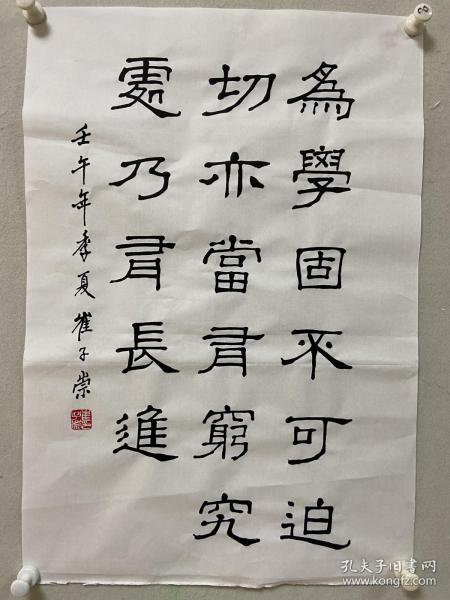 為學固不可迫
切亦當有窮究
處乃有長進
壬午年季夏崔子崇
孔夫子旧书网
www.kongfz.com